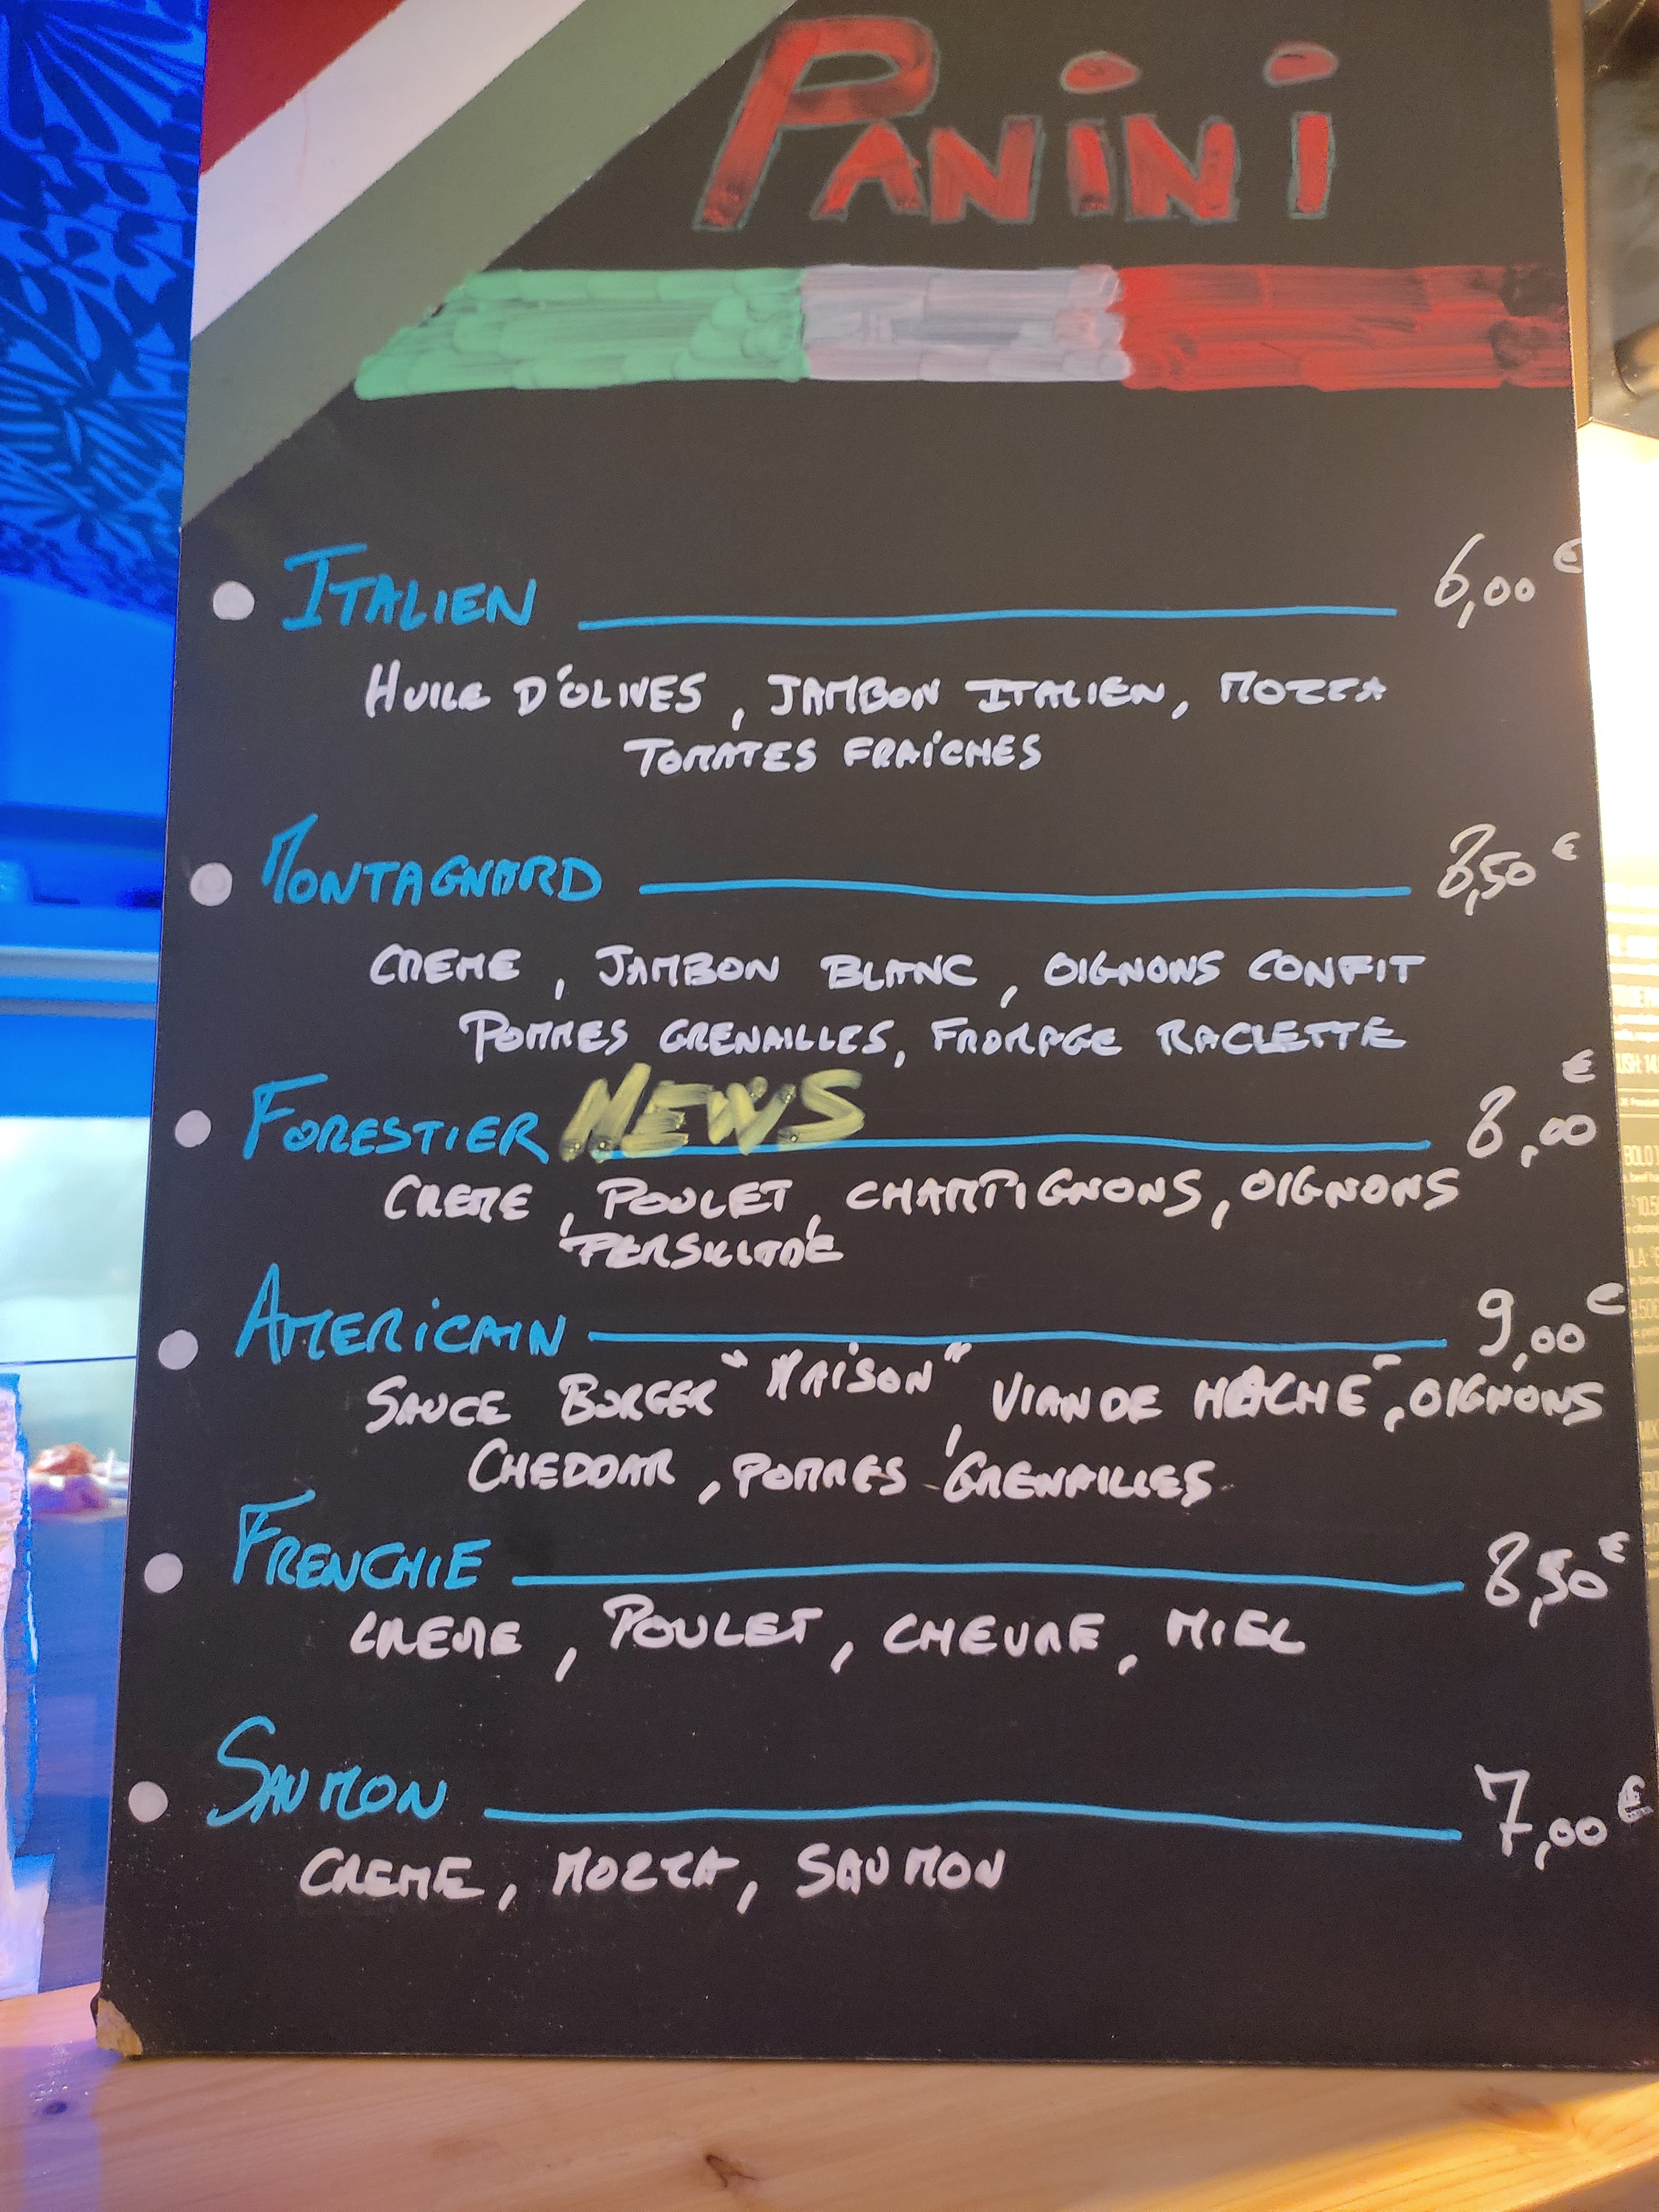 PANINI
ITALIEN 6,00 €
HUILE D'OLIVES, JAMBON ITALIEN, MOZZA
TOMATES FRAÎCHES
MONTAGNARD 8,50 €
CREME, JAMBON BLANC, OIGNONS CONFIT
POMMES GRENAILLES, FROMAGE RACLETTE
FORESTIER NEWS 8,00 €
CREME, POULET, CHAMPIGNONS, OIGNONS
PERSILLADE
AMERICAIN 9,00 €
SAUCE BURGER "MAISON", VIANDE HACHÉ, OIGNONS
CHEDDAR, POMMES GRENAILLES
FRENCHIE 8,50 €
CREME, POULET, CHEVRE, MIEL
SAUMON 7,00 €
CREME, MOZZA, SAUMON